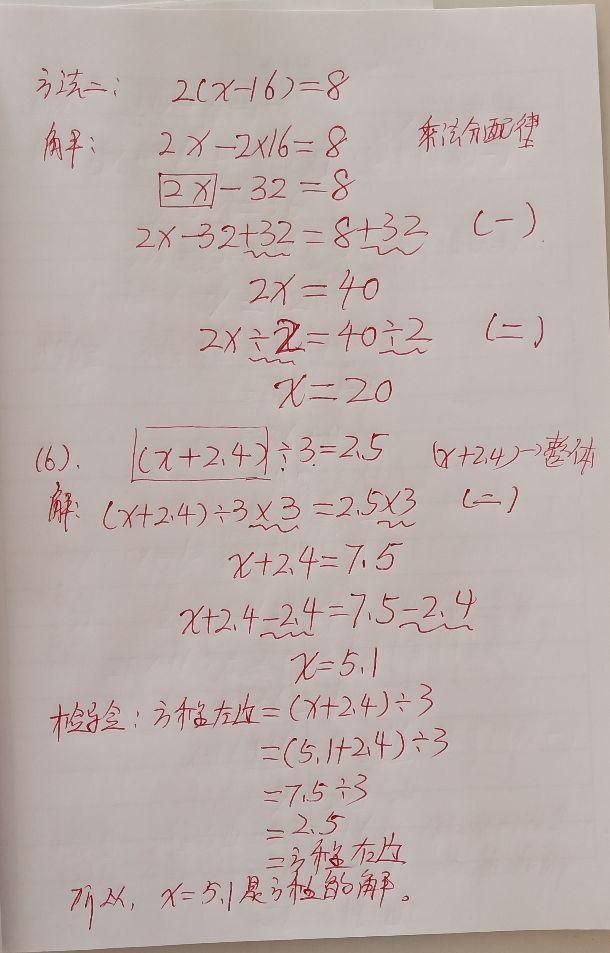 方法二: 2(x-16)=8
解: 2x-2×16=8 乘法分配律
2x-32=8
2x-32+32=8+32 (一)
2x=40
2x÷2=40÷2 (二)
x=20
(6). (x+2.4)÷3=2.5 (x+2.4)→整体
解: (x+2.4)÷3×3=2.5×3 (二)
x+2.4=7.5
x+2.4-2.4=7.5-2.4
x=5.1
检验: 方程左边=(x+2.4)÷3
=(5.1+2.4)÷3
=7.5÷3
=2.5
=方程右边
所以, x=5.1是方程的解。